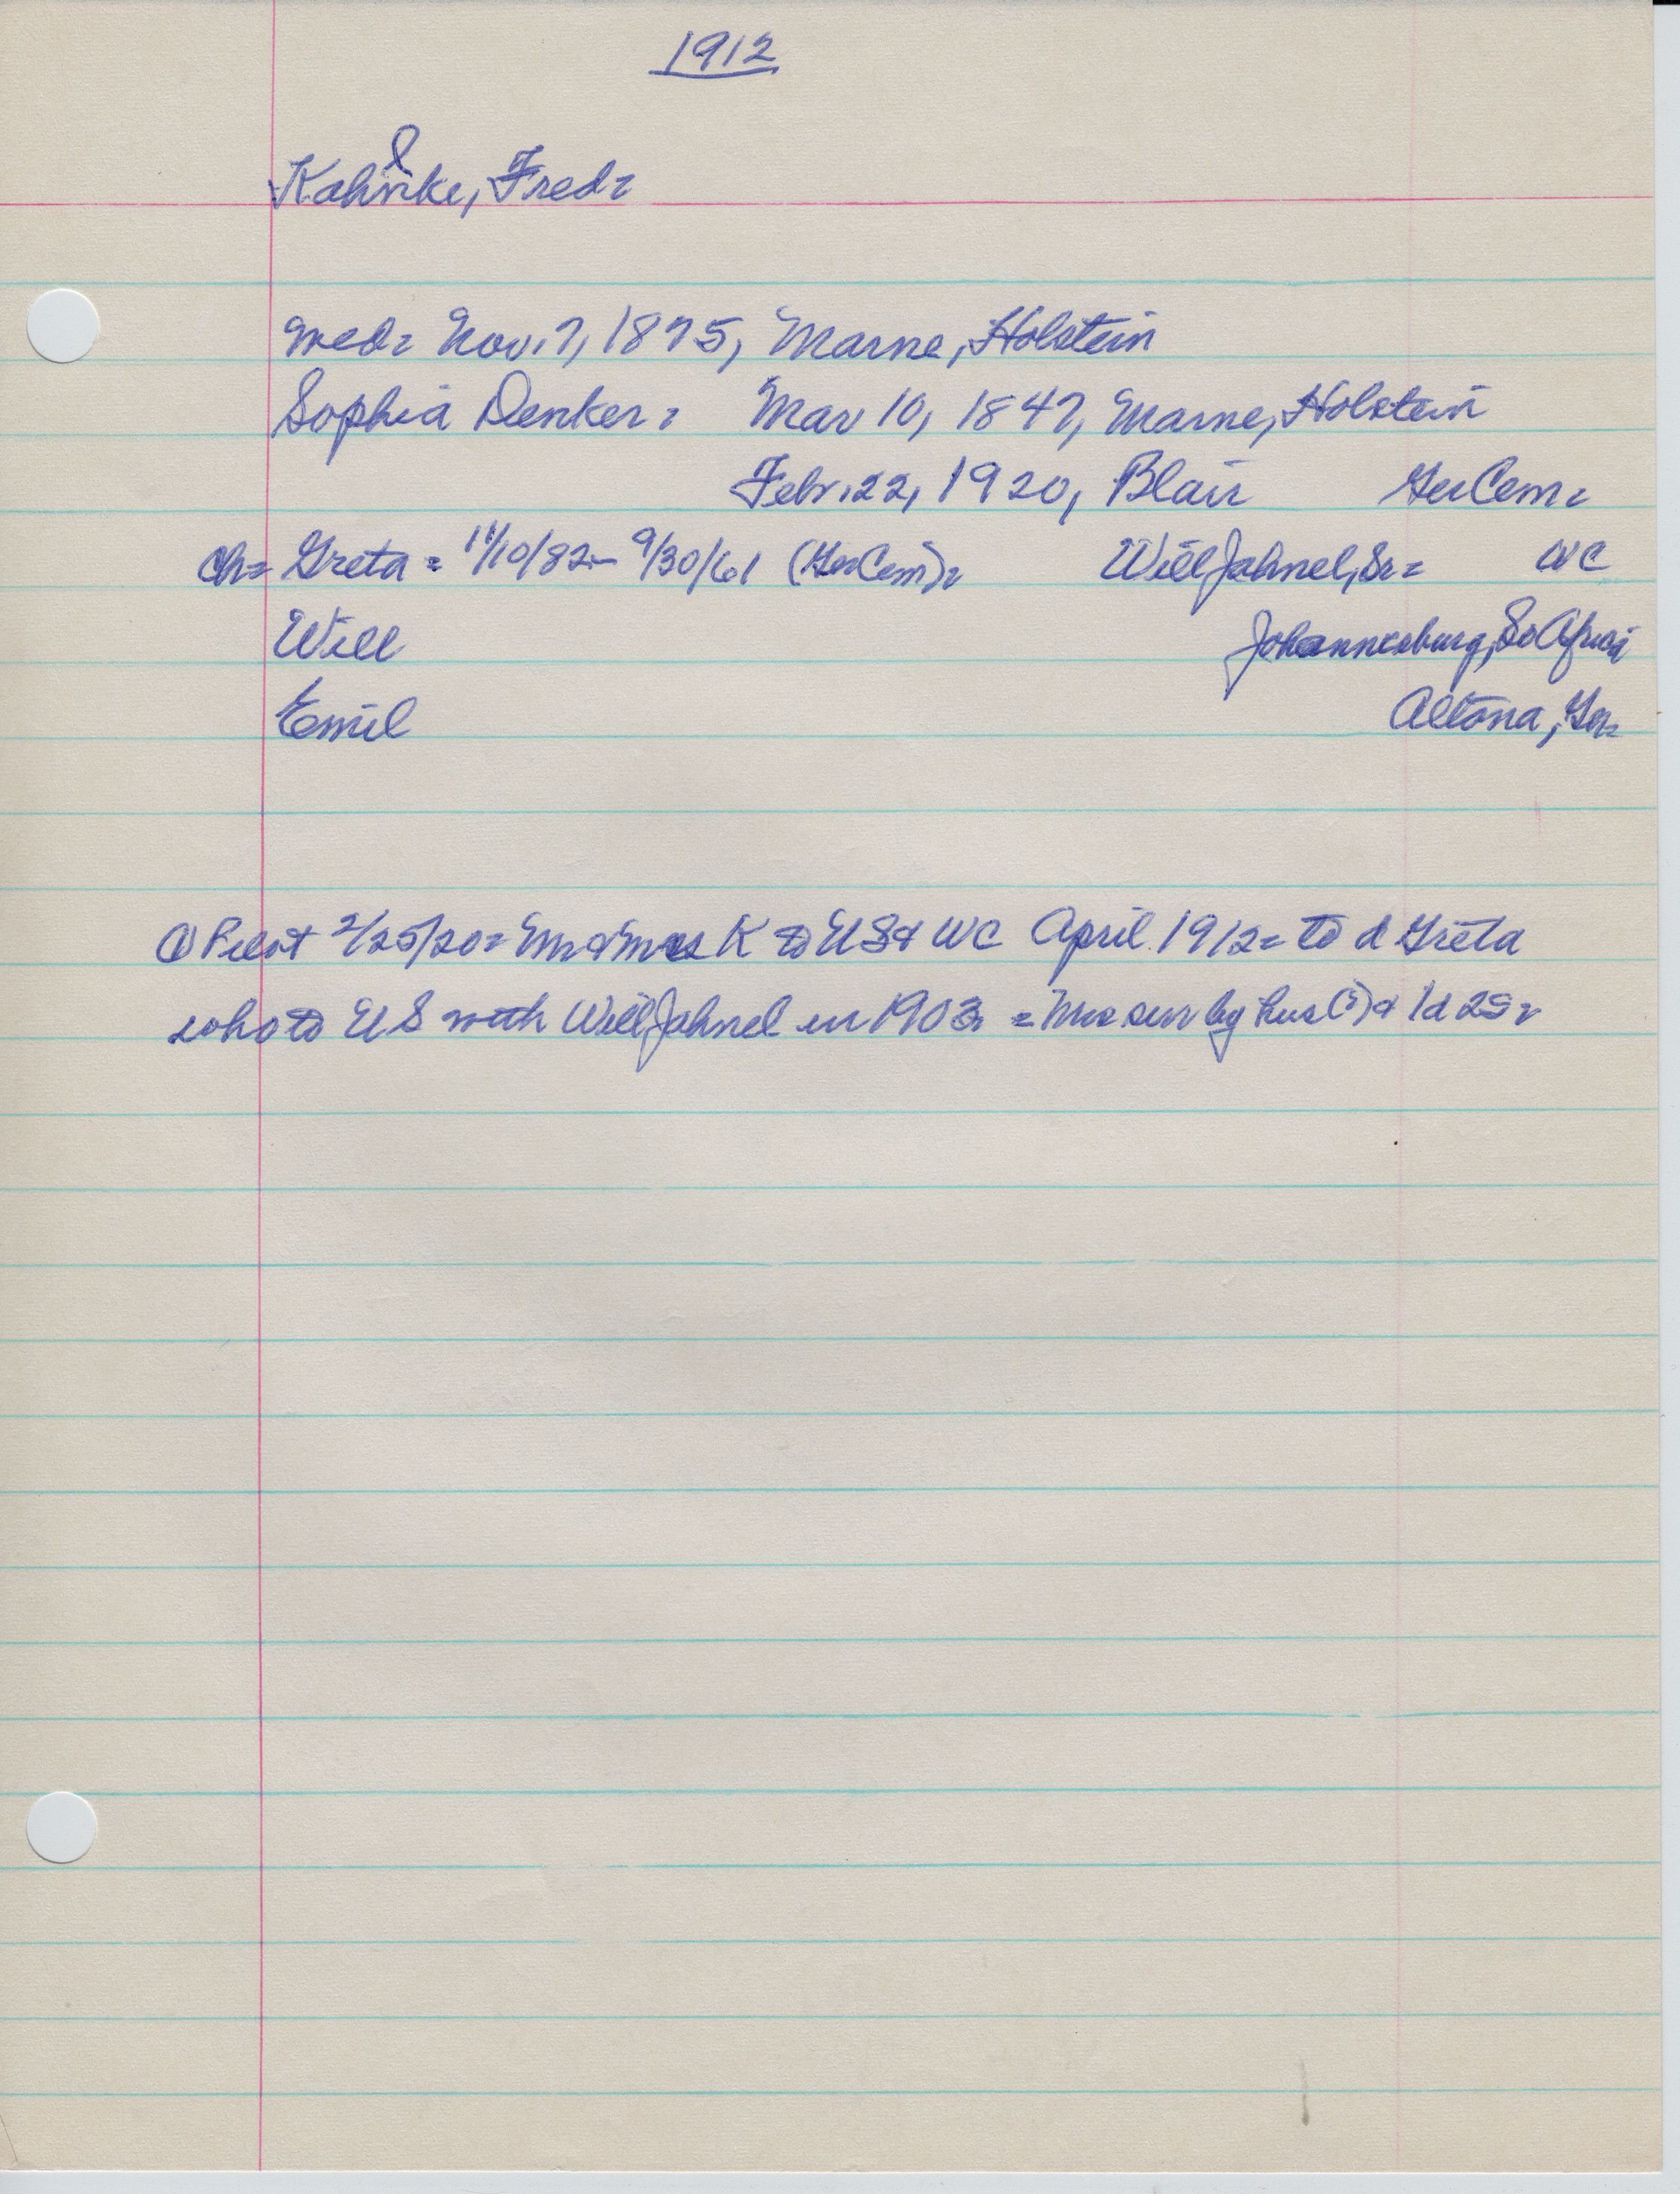 1912
Kahnke, Fred=
Wed= Nov. 7, 1875, Marne, Holstein
Sophia Denker= Mar 10, 1847, Marne, Holstein
Febr. 22, 1920, Blair GerCem=
Ch= Greta = 11/10/82- 9/30/61 (GerCem)= Will Jahnel, Sr= WC
Will Johannesburg, So Africa
Emil Altona, Ger=
① Pilot 2/25/20= Mr & Mrs K to US & WC April 1912= to d Greta
who to US with Will Jahnel in 1903 = Mrs sur by hus(?) & 1d 2s=